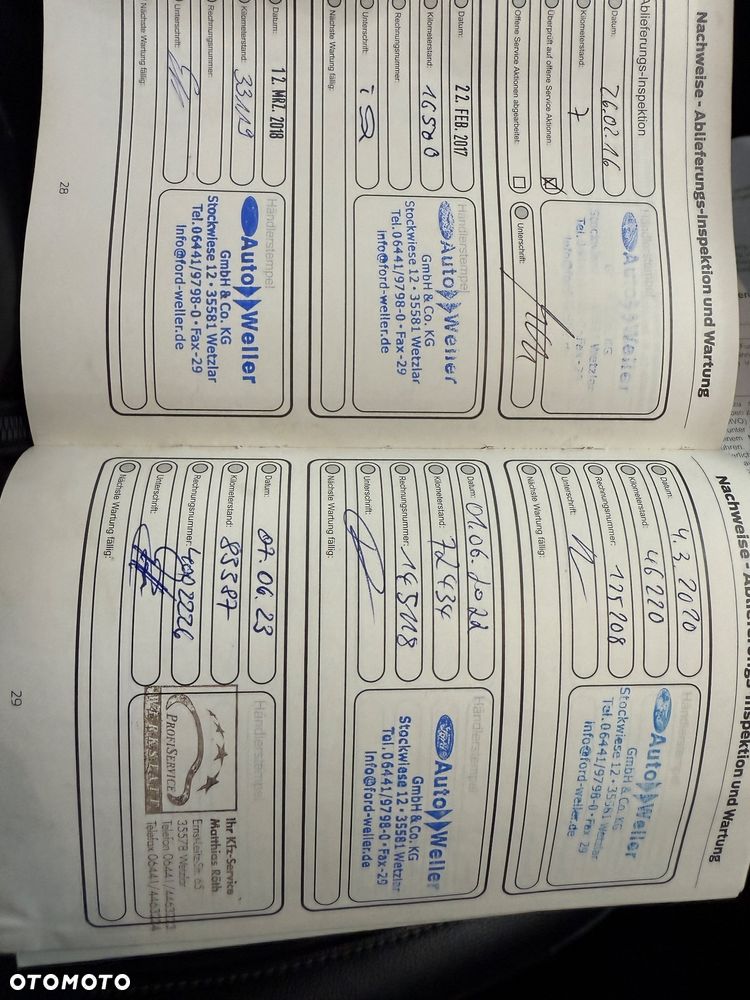 Nachweise - Ablieferungs-Inspektion und Wartung
Ablieferungs-Inspektion
Datum: 26.02.16
Kilometerstand: 7
Überprüft auf offene Service Aktionen:
Offene Service Aktionen abgearbeitet:
Händlerstempel
Auto Weller
KG
Wetzlar
Tel.
Unterschrift:
Datum: 22. FEB. 2017
Kilometerstand: 16580
Rechnungsnummer:
Unterschrift:
Nächste Wartung fällig:
Händlerstempel
Ford Auto Weller
GmbH & Co. KG
Stockwiese 12 • 35581 Wetzlar
Tel. 06441/9798-0 • Fax -29
info@ford-weller.de
Datum: 12. MRZ. 2018
Kilometerstand: 33119
Rechnungsnummer:
Unterschrift:
Nächste Wartung fällig:
Händlerstempel
Ford Auto Weller
GmbH & Co. KG
Stockwiese 12 • 35581 Wetzlar
Tel. 06441/9798-0 • Fax -29
Info@ford-weller.de
28
Nachweise - Ablieferungs-Inspektion und Wartung
Datum: 4.3.2020
Kilometerstand: 46220
Rechnungsnummer: 125208
Unterschrift:
Nächste Wartung fällig:
Händlerstempel
Ford Auto Weller
GmbH & Co. KG
Stockwiese 12 • 35581 Wetzlar
Tel. 06441/9798-0 • Fax 29
info@ford-weller.de
Datum: 01.06.2022
Kilometerstand: 72434
Rechnungsnummer: 145118
Unterschrift:
Nächste Wartung fällig:
Händlerstempel
Ford Auto Weller
GmbH & Co. KG
Stockwiese 12 • 35581 Wetzlar
Tel. 06441/9798-0 • Fax -29
Info@ford-weller.de
Datum: 07.06.23
Kilometerstand: 83387
Rechnungsnummer: 4002226
Unterschrift:
Nächste Wartung fällig:
Händlerstempel
PROFISERVICE
WERKSTATT
Ihr Kfz-Service
Matthias Röth
35578 Wetzlar
Telefon 06441/
Telefax 06441/
29
OTOMOTO